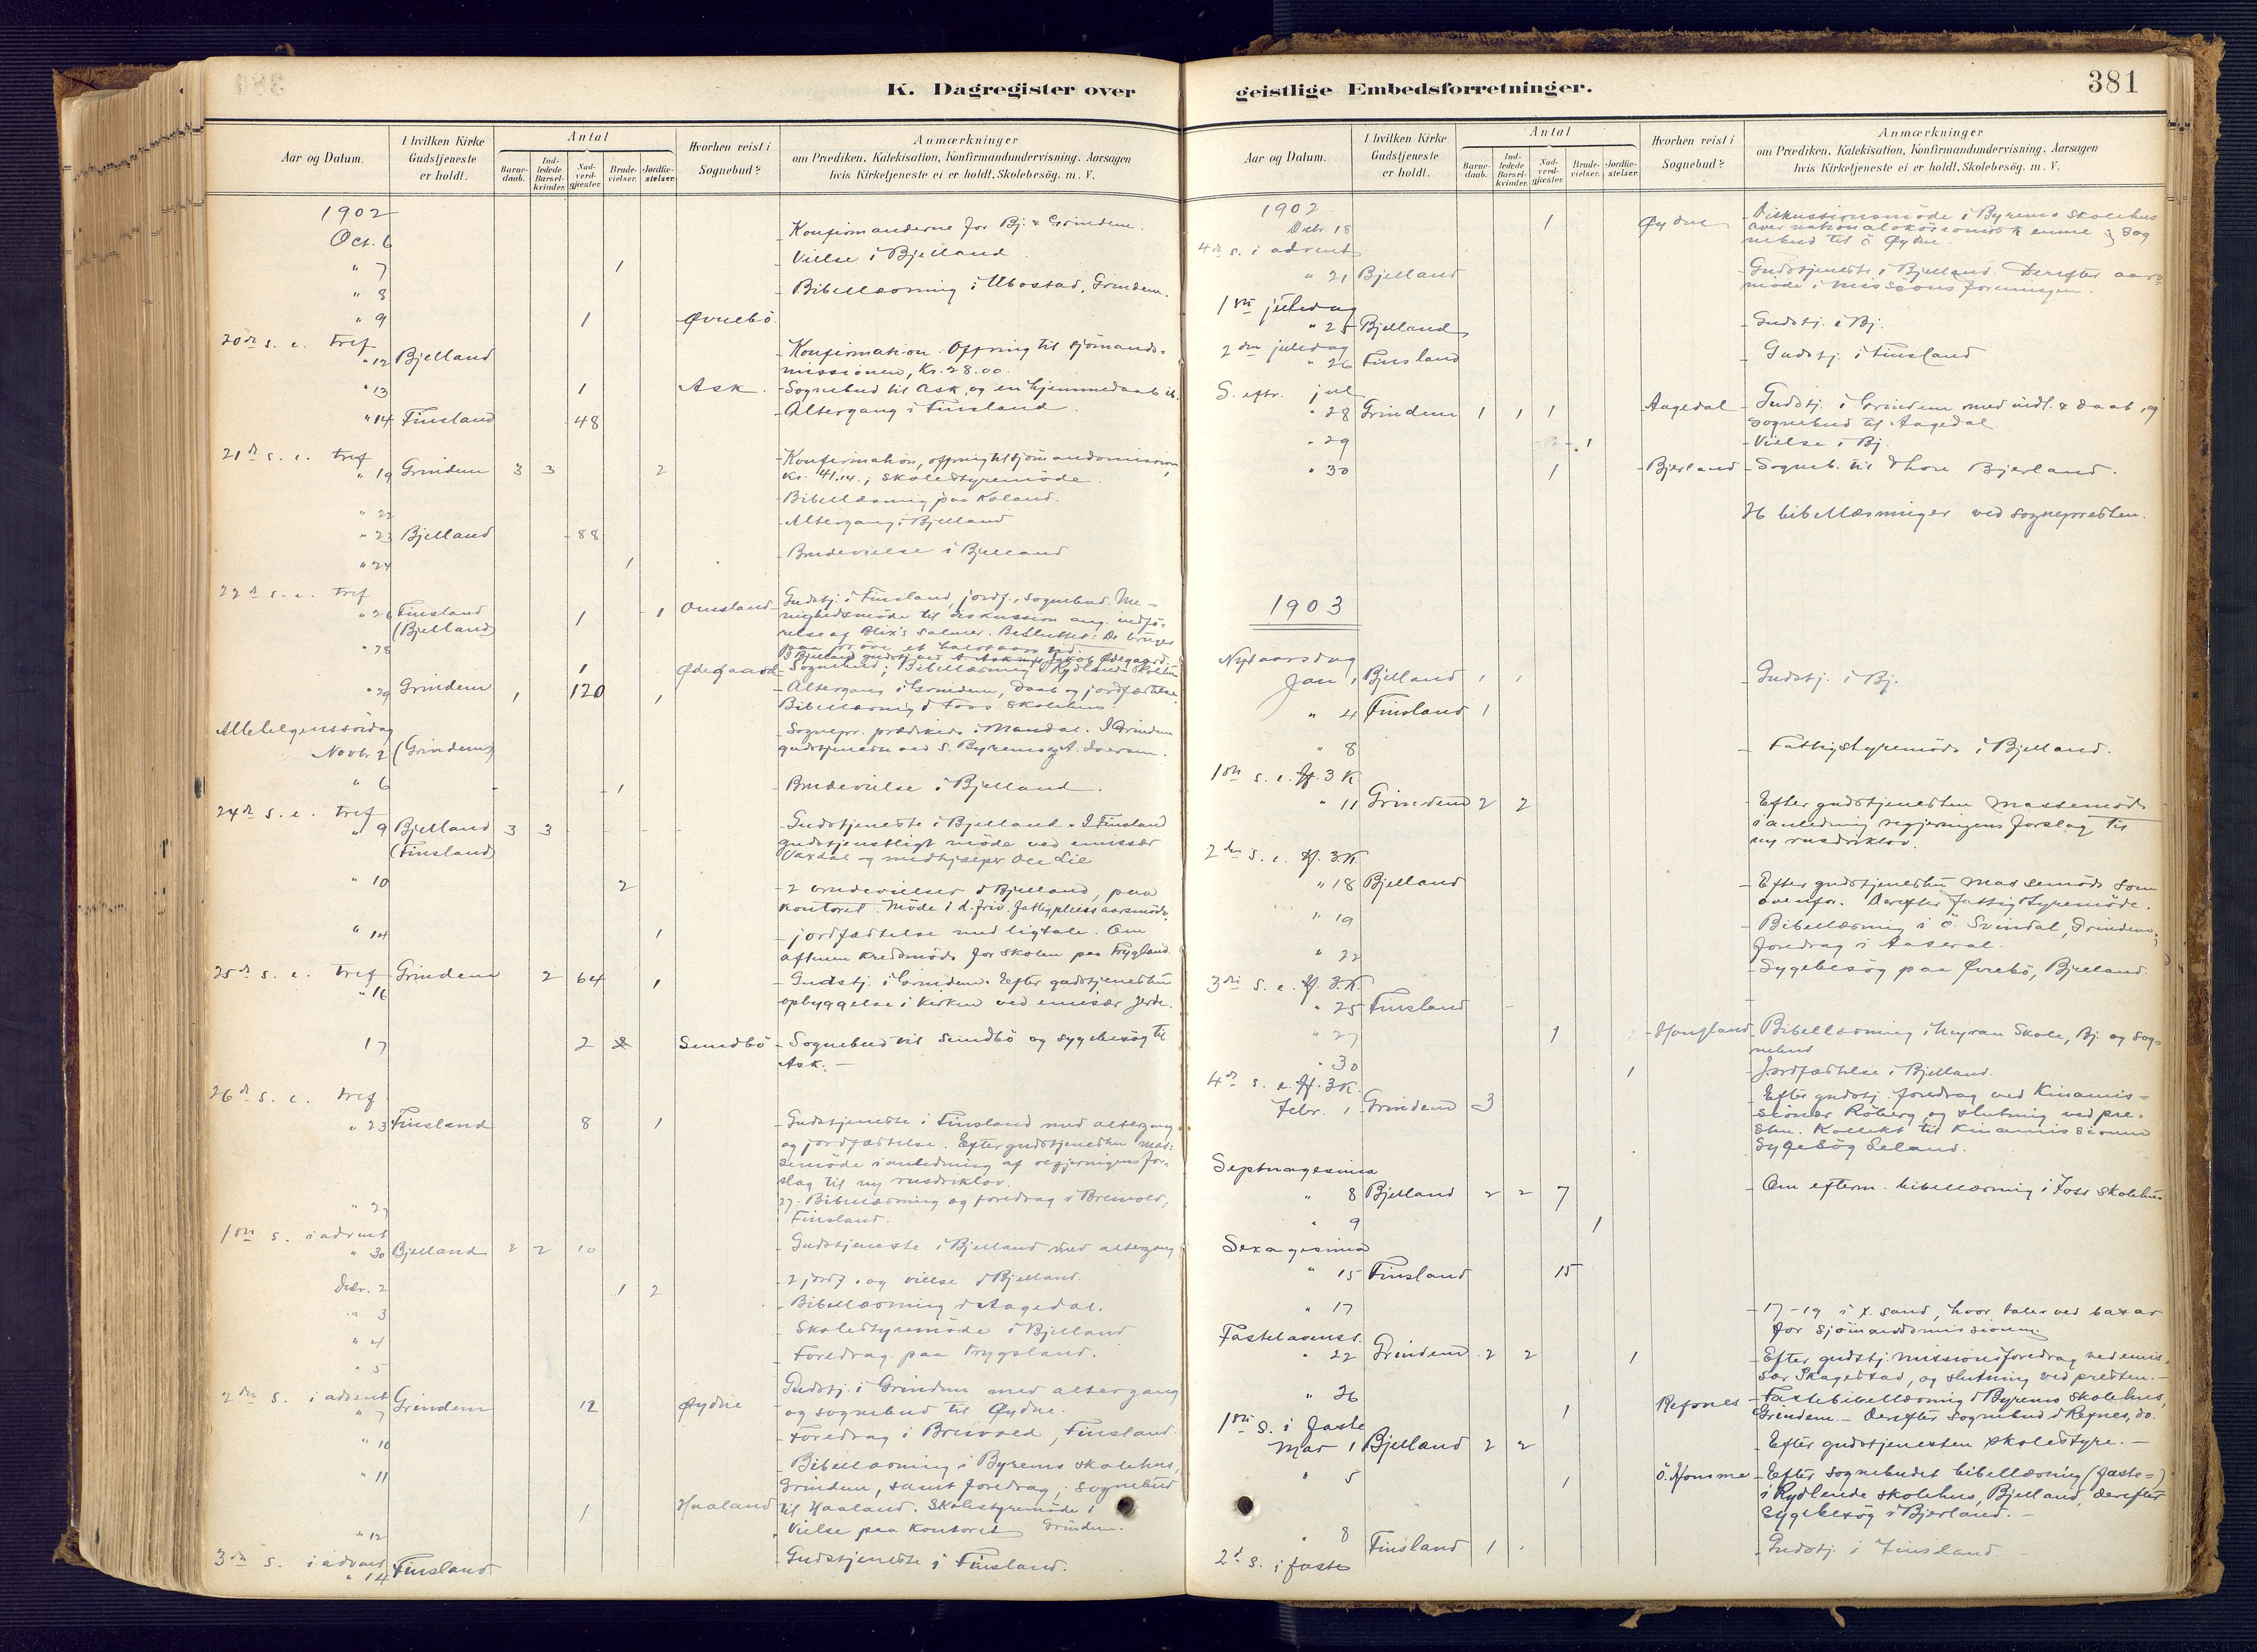 K. Dagregister over
Aar og Datum.
I hvilken Kirke Gudstjeneste er holdt.
Antal
Barne-daab.
Ind-ledede Barsel-kvinder.
Nad-verd-gjæster.
Brude-vielser.
Jordfæ-stelser.
Hvorhen reist i Sognebud?
Anmærkninger
om Prædiken, Katekisation, Konfirmandundervisning, Aarsagen
hvis Kirketjeneste ei er holdt, Skolebesög. m. V.
1902
Oct. 6 Konfirmanderne for Bj. & Grindem.
" 7 1 Vielse i Bjelland
" 8 Bibellæsning i Ubostad, Grindem.
" 9 1 Øvrebö
20de s. e. tref
" 12 Bjelland Konfirmation. Offring til sjömands-
missionen, Kr. 28.00.
" 13 1 Ask. Sognebud til Ask, og en hjemmedaab ib.
" 14 Finsland 48 Altergang i Finsland.
21de s. e. tref
" 19 Grindem 3 3 2 Konfirmation, offring til sjömandsmission
Kr. 41.14.; skolestyremöde.
" 22 Bibellæsning paa Koland.
" 23 Bjelland 88 Altergang i Bjelland
" 24 1 Brudevielse i Bjelland
22de s. e. tref
" 26 Finsland 1 1 Omsland Gudstj. i Finsland, jordf., sognebud. Me-
(Bjelland) nighedsmöde til diskussion ang. indfö-
relse af Blix's salmer. Besluttet: De bruges
paa pröve et halvt aars tid.
I Bjelland gudstj. ved
" 28 1 Ødegaard Sognebud; Bibellæsning i Rydlands Skolehus
" 29 Grindem 1 120 1 Altergang i Grindem, daab og jordfæstelse.
Bibellæsning i Foss skolehus.
Allehelgenssöndag
Novb. 2 (Grindem) Sognepr. prædikede i Mandal. I Grindem
gudstjeneste ved S. Byremo og A. Iversen.
" 6 1 Brudevielse i Bjelland.
24de s. e. tref
" 9 Bjelland 3 3 Gudstjeneste i Bjelland. I Finsland
(Finsland) gudstjenstligt möde ved emissær
og medhjælper Ole Lie
" 10 2 2 brudevielser i Bjelland, paa
kontoret. Möde i d. friv. fattigpleies aarsmöde.
" 14 1 jordfæstelse med ligtale. Om
aftenen kredsmöde for skolen paa Trygland
25de s. e. tref Grindem 2 64 1 Gudstj. i Grindem. Efter gudstjenesten
" 16 opbyggelse i kirken ved emissær Jerde.
17 2 Sundbö Sognebud til Sundbö og sygebesög til
Ask.
26de s. e. tref
" 23 Finsland 8 1 Gudstjeneste i Finsland med altergang
og jordfæstelse. Efter gudstjenesten mas-
semöde i anledning af regjeringens for-
slag til ny rusdriklov.
" 27 27. Bibellæsning og foredrag i Breivold,
Finsland.
1ste s. i advent
" 30 Bjelland 2 2 10 Gudstjeneste i Bjelland med altergang
Debr. 2 1 2 2 jordf. og vielse i Bjelland.
" 3 Bibellæsning i Aagedal.
" 4 Skolestyremöde i Bjelland
" 5 Foredrag paa Trygsland.
2den s. i advent Grindem 12 Øydne Gudstj. i Grindem med altergang
" 7 og sognebud til Øydne.
" 10 Foredrag i Breivold, Finsland
" 11 Bibellæsning i Byremo skolehus,
Grindem, samt foredrag; sognebud
1 Haaland til Haaland. Skolestyremöde i
" 12 Vielse paa kontoret Grindem.
3die s. i advent Finsland Gudstjeneste i Finsland.
" 14
geistlige Embedsforretninger.
381
Aar og Datum.
I hvilken Kirke Gudstjeneste er holdt.
Antal
Barne-daab.
Ind-ledede Barsel-kvinder.
Nad-verd-gjæster.
Brude-vielser.
Jordfæ-stelser.
Hvorhen reist i Sognebud?
Anmærkninger
om Prædiken, Katekisation, Konfirmandundervisning, Aarsagen
hvis Kirketjeneste ei er holdt, Skolebesög. m. V.
1902
Debr. 18 1 Øydne Diskussionsmöde i Byremo skolehus
over nationalökonomisk emne; sog
nebud til ö Øydne.
4de s. i advent
" 21 Bjelland Gudstjeneste i Bjelland. Derefter aars
möde i missionsforeningen.
1ste juledag
" 25 Bjelland Gudstj. i Bj.
2den juledag
" 26 Finsland Gudstj. i Finsland
S. eftr. jul
" 28 Grindem 1 1 1 Aagedal Gudstj. i Grindem med indl. & daab, og
sognebud til Aagedal
" 29 1 Vielse i Bj.
" 30 1 Bjerland Sogneb. til Thore Bjerland.
26 bibellæsninger ved sognepresten.
1903
Nytaarsdag
Jan 1 Bjelland 1 1 Gudstj. i Bj.
" 4 Finsland 1
" 8 Fattigstyremöde i Bjelland.
1ste s. e. H. 3 K
" 11 Grindem 2 2 Efter gudstjenesten massemöde
i anledning regjeringens forslag til
ny rusdriklov.
2den s. e. H. 3 K.
" 18 Bjelland Efter gudstjenesten massemöde som
ovenfor. Derefter fattigstyremöde.
" 19 Bibellæsning i ö. Svindal, Grindem;
foredrag i Aaseral.
" 22 Sygebesög paa Øvrebö, Bjelland.
3die s. e. H. 3 K.
" 25 Finsland
" 27 1 Haugland Bibellæsning i Myran Skole, Bj. og sog-
nebud
" 30 1 Jordfæstelse i Bjelland.
4de s. e. H. 3 K.
Febr. 1 Grindem 3 Efter gudstj. foredrag ved Kinamis-
sionær Röberg og slutning ved pre-
sten. Kollekt til Kinamissionen
Sygebsög Leland.
Septuagesima
" 8 Bjelland 2 2 7 Om efterm. bibellæsning i Foss skolehus
" 9 1
Sexagesima
" 15 Finsland 15
" 17 17-19 i X.sand, hvor taler ved bazar
for sjömandsmissionen
Fastelavenss.
" 22 Grindem 2 2 1 Efter gudstj. missionsforedrag ved emis-
sær Skagestad, og slutning ved presten.
" 26 1 Refsnes Fastebibellæsning i Byremo skolehus,
Grindem. Derefter sognebud i Refnes, do.
1ste s. i faste
Mar 1 Bjelland 2 2 Efter gudstjenesten skolestyre.
" 5 1 Ö. Homme Efter sognebudet bibellæsning (faste=)
i Rydlende skolehus, Bjelland, derefter
sygebesög i Bjerland.
" 8 Finsland 1 Gudstj. i Finsland
2d s. i faste